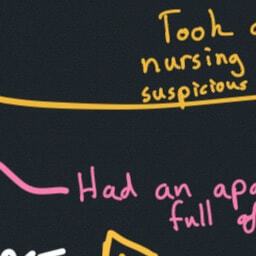 Took
nursing
suspicious
Had an
full of